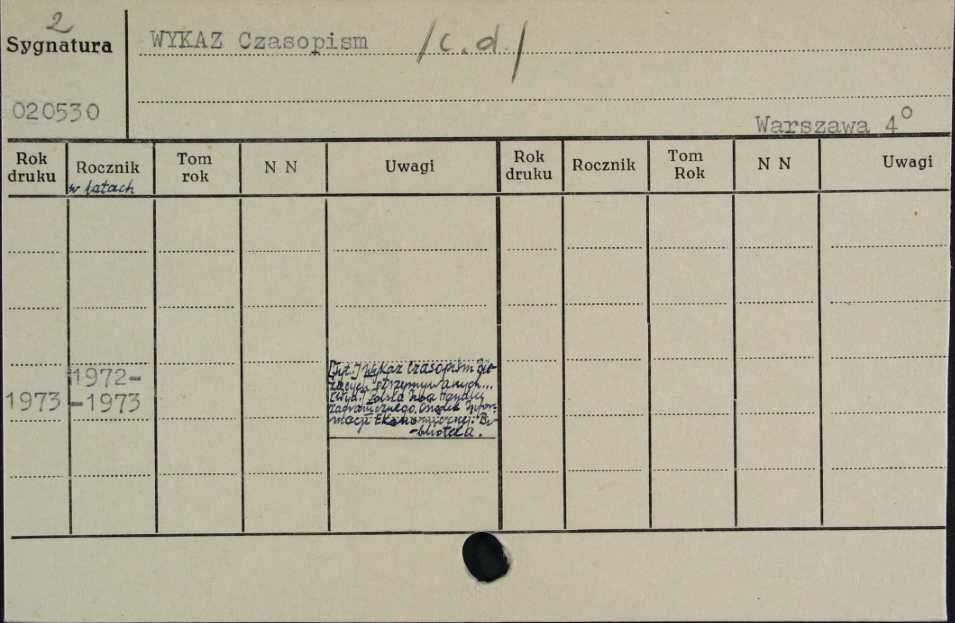 2
Sygnatura
WYKAZ Czasopism /c.d/
020530
Warszawa 4°
Rok druku Rocznik w latach Tom rok N N Uwagi Rok druku Rocznik Tom Rok N N Uwagi
1973 1972-
-1973
[Tyt.] Wykaz Czasopism bie-
żących otrzymywanych...
[Wyd.] Polska Izba Handlu
Zagranicznego. Ośrodek Infor-
macji Ekonomicznej. Bi-
-blioteka.